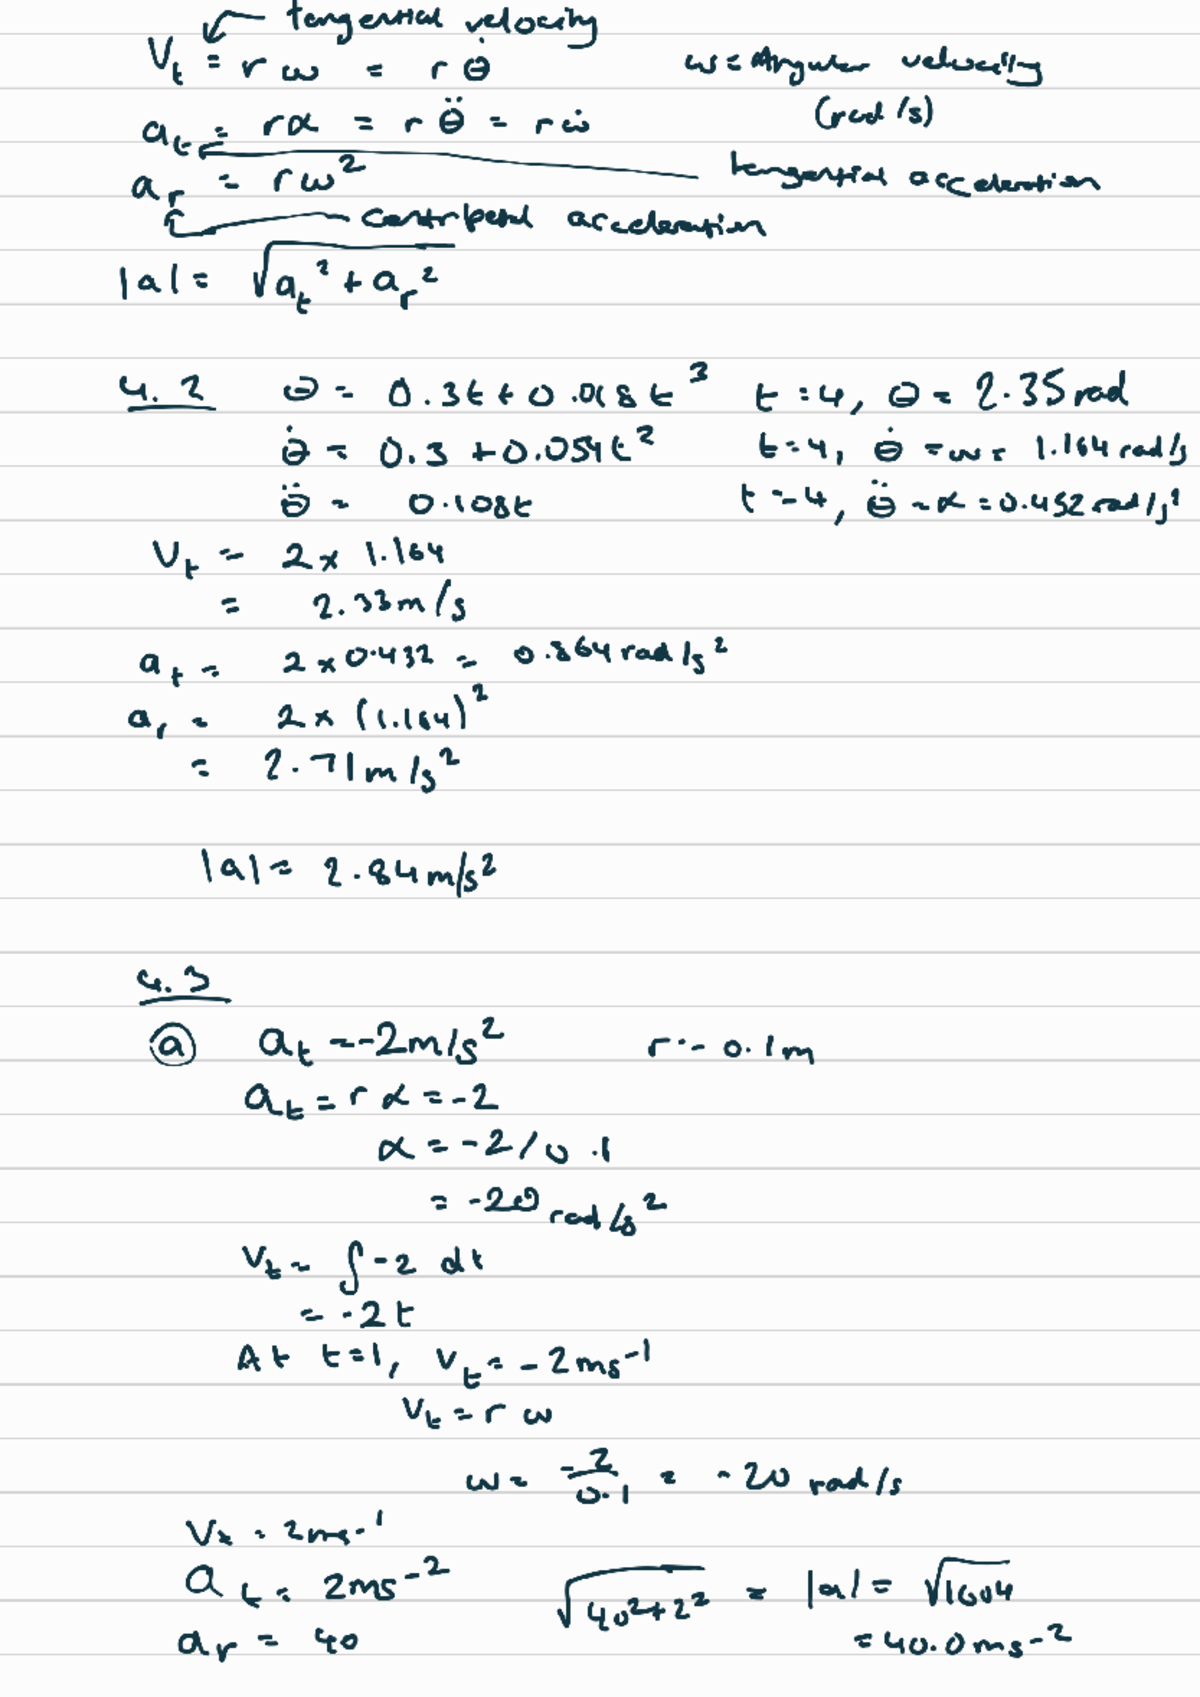 tangential velocity
V_t = rω = rθ̇
ω = Angular velocity
(rad/s)
a_t = rα = rθ̈ = rω̇
tangential acceleration
a_r = rω²
centripetal acceleration
|a| = √(a_t² + a_r²)
4.2 θ = 0.3t + 0.018t³ t = 4, θ = 2.35 rad
θ̇ = 0.3 + 0.054t² t = 4, θ̇ = ω = 1.164 rad/s
θ̈ = 0.108t t = 4, θ̈ = α = 0.432 rad/s²
V_t = 2 × 1.164
= 2.33 m/s
a_t = 2 × 0.432 = 0.864 rad/s²
a_r = 2 × (1.164)²
= 2.71 m/s²
|a| = 2.84 m/s²
4.3
ⓐ a_t = -2 m/s² r = 0.1 m
a_t = rα = -2
α = -2/0.1
= -20 rad/s²
V_t = ∫ -2 dt
= -2t
At t = 1, V_t = -2 ms⁻¹
V_t = rω
ω = -2/0.1 = -20 rad/s
V_t = 2 ms⁻¹
a_t = 2 ms⁻² √(40² + 2²) = |a| = √1604
a_r = 40 = 40.0 ms⁻²